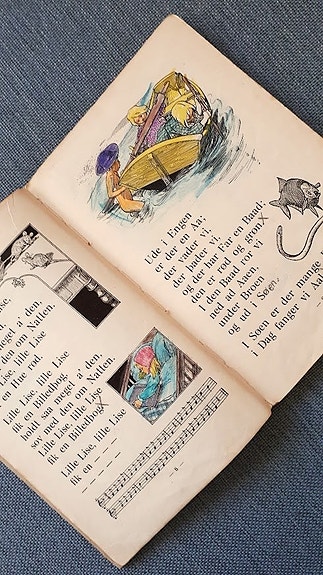 Lise,
saa meget a' den,
den om Natten.
Lise, lille Lise
en lille rød
Lille Lise, lille Lise
fik en Billedbog,
holdt saa meget a' den,
sov med den om Natten.
Lille Lise, lille Lise
fik en Billedbog
Lille Lise, lille Lise
fik en — — — —
— — — — —
— 8 —
Ude i Engen
er der en Aa;
der vader vi,
der bader vi,
og der har Far en Baad:
den er rød og grøn.
I den Baad ror vi
ned ad Aaen,
under Broen
og ud i Søen.
I Søen er der mange
i Dag fanger vi Aal